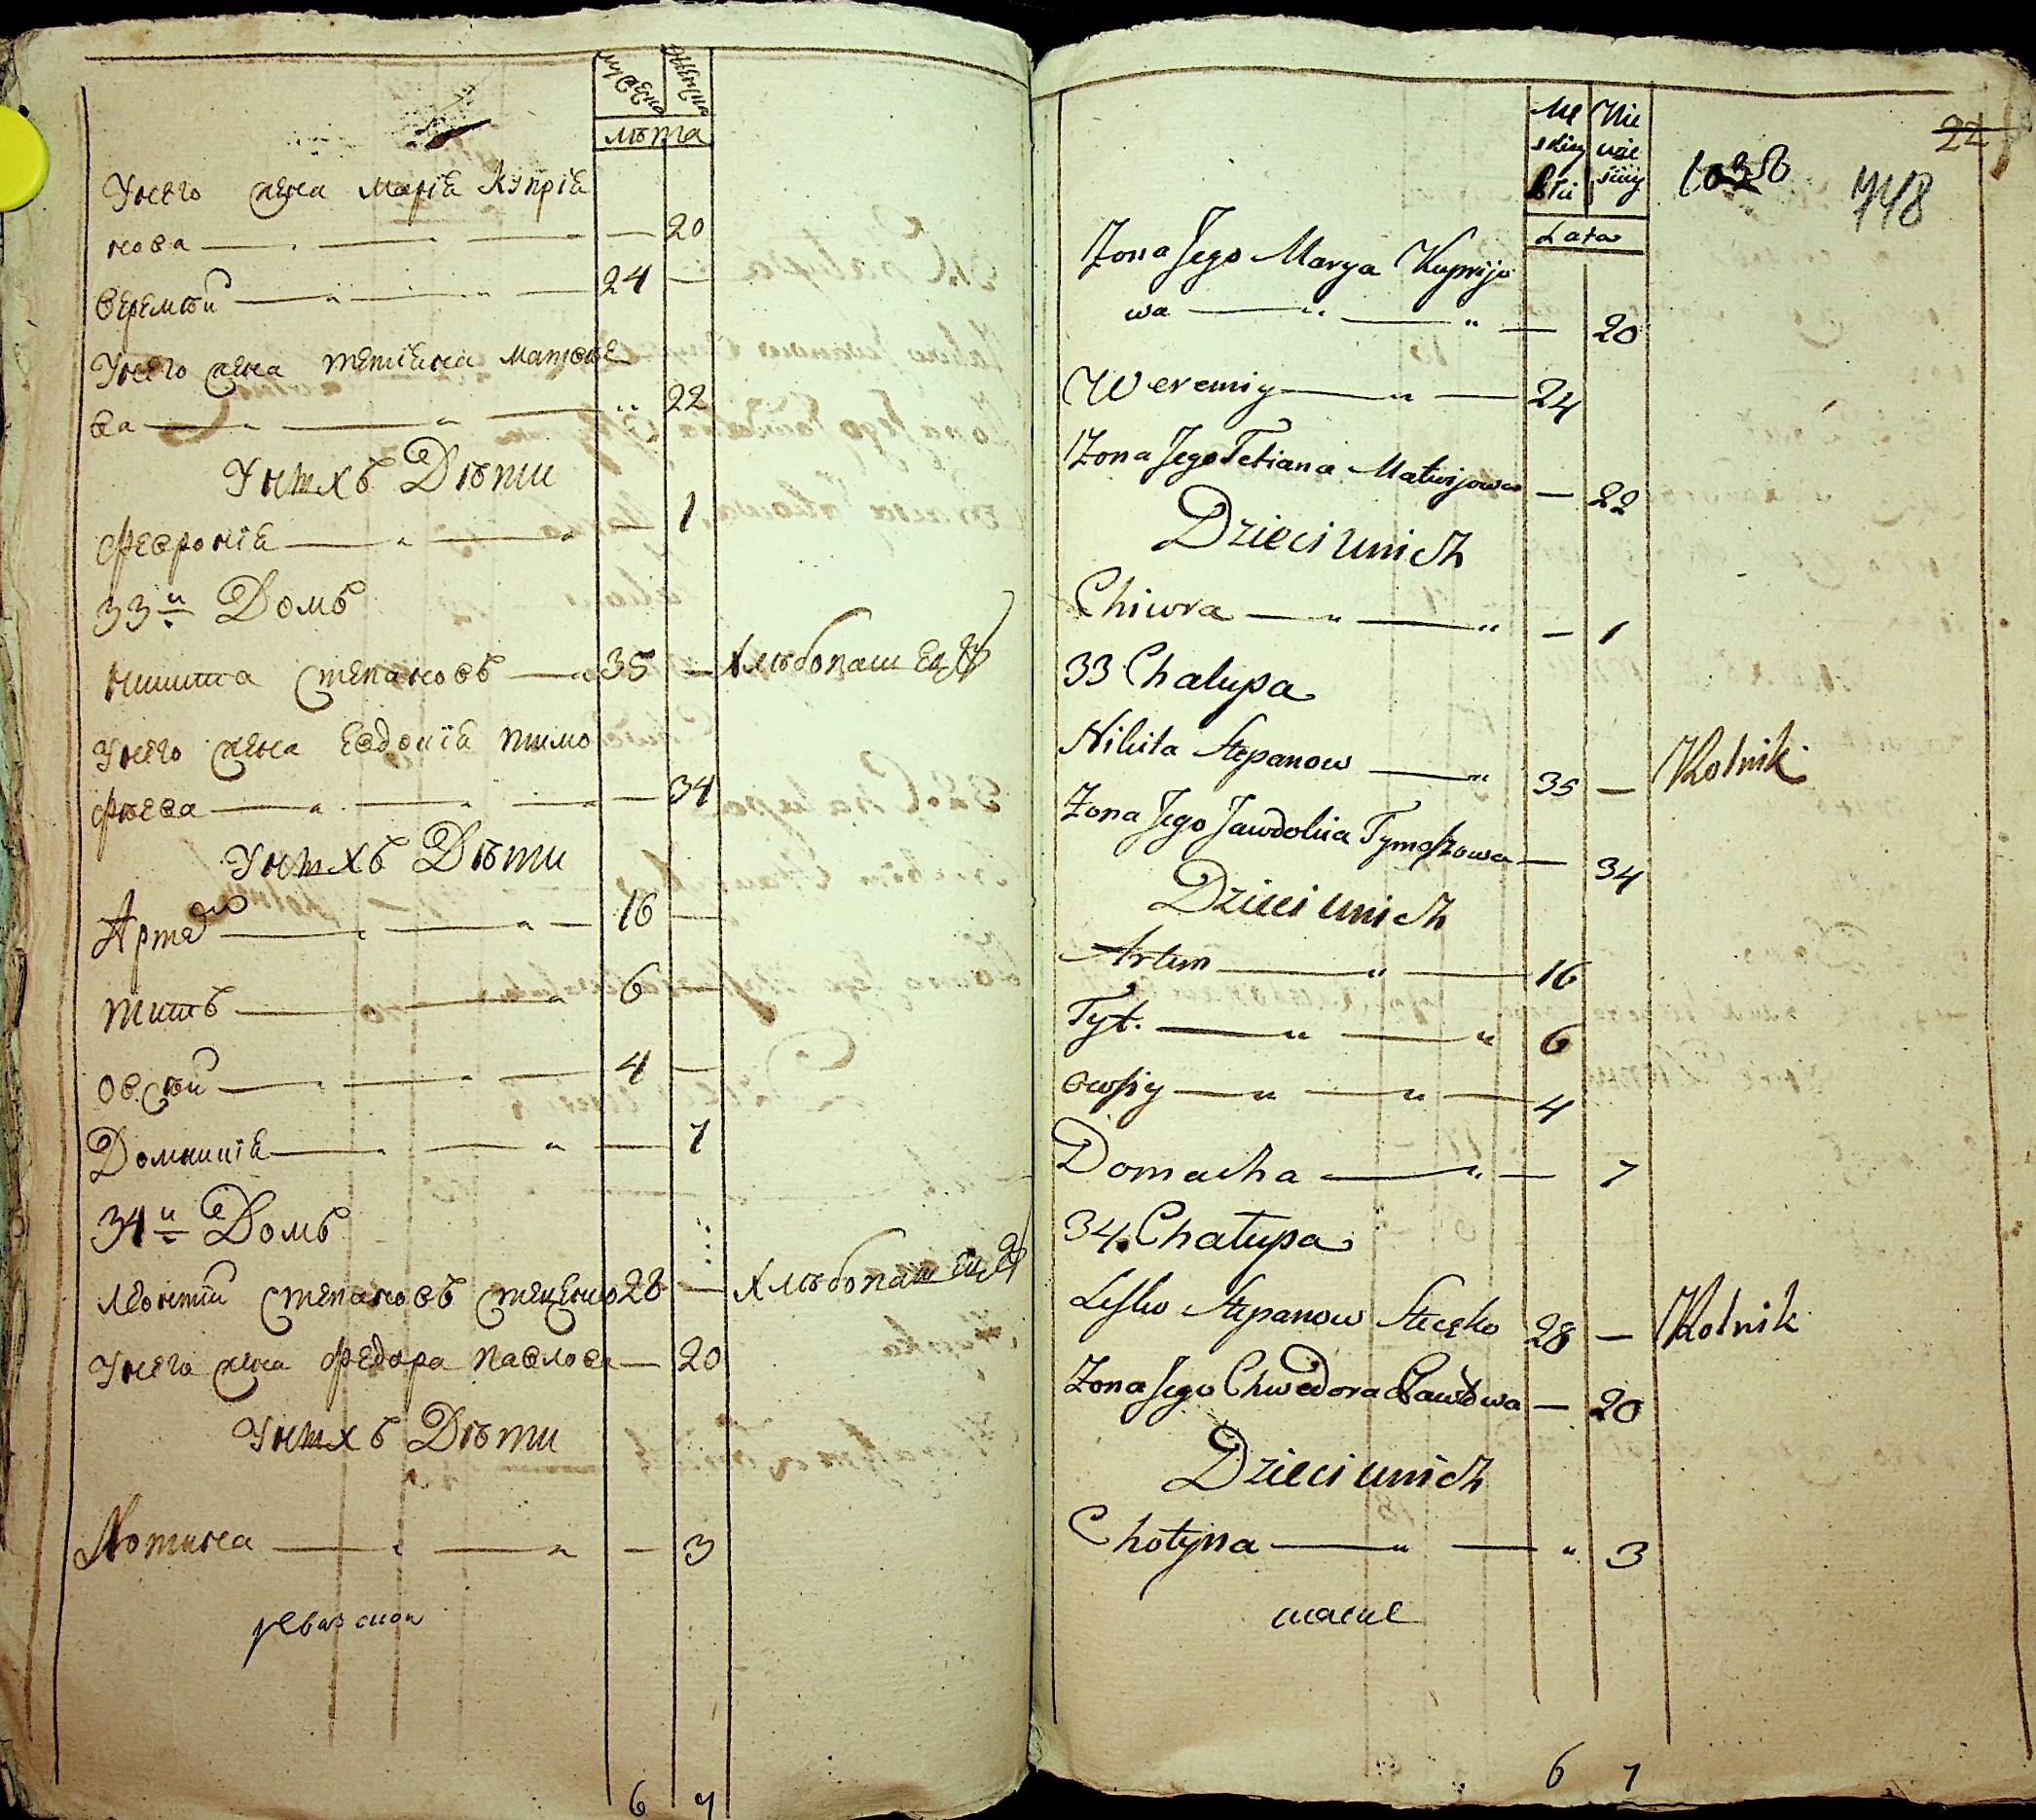 мужеска
женска
лѣта
Унего жена Марія Купріа
нова 20
Веремѣй 24
Унего жена Тетіана Матвѣе
ва 22
Унихъ Дѣти
Февронія 1
33й Домъ
Никита Степановъ 35 Хлѣбопашецъ
Унего жена Евдокія Тимо
фѣева 34
Унихъ Дѣти
Артемъ 16
Титъ 6
Овсѣй 4
Домникія 7
34й Домъ
Леонтій Степановъ Стеценко 28 Хлѣбопашецъ
Унего жена Федора Павлова 20
Унихъ Дѣти
Хотина 3
6 7
22
748
Lata
Żona Jego Marya Kuprijo
wa 20
Weremiy 24
Żona Jego Tetiana Matwijowa 22
Dzieci unich
Chiwra 1
33 Chalupa
Nikita Stepanow 35 Rolnik
Żona Jego Jawdokia Tymoszowa 34
Dzieci unich
Artem 16
Tyt. 6
Owsiy 4
Domacha 7
34. Chalupa
Lesko Stepanow Stecęko 28 Rolnik
Żona Jego Chwedora Pawłowa 20
Dzieci unich
Chotyna 3
6 7